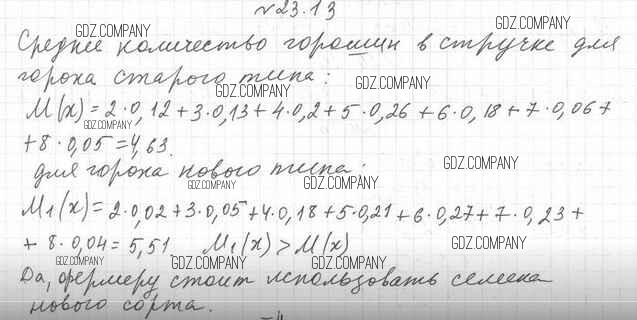 №23.13
Среднее количество горошин в стручке для
гороха старого типа:
M(x) = 2·0,12+3·0,13+4·0,2+5·0,26+6·0,18+7·0,06+
+8·0,05=4,63.
для гороха нового типа:
M₁(x)=2·0,02+3·0,05+4·0,18+5·0,21+6·0,27+7·0,23+
+ 8·0,04= 5,51. M₁(x)>M(x)
Да, фермеру стоит использовать семена
нового сорта.
GDZ.COMPANY
GDZ.COMPANY
GDZ.COMPANY
GDZ.COMPANY
GDZ.COMPANY
GDZ.COMPANY
GDZ.COMPANY
GDZ.COMPANY
GDZ.COMPANY
GDZ.COMPANY
GDZ.COMPANY
GDZ.COMPANY